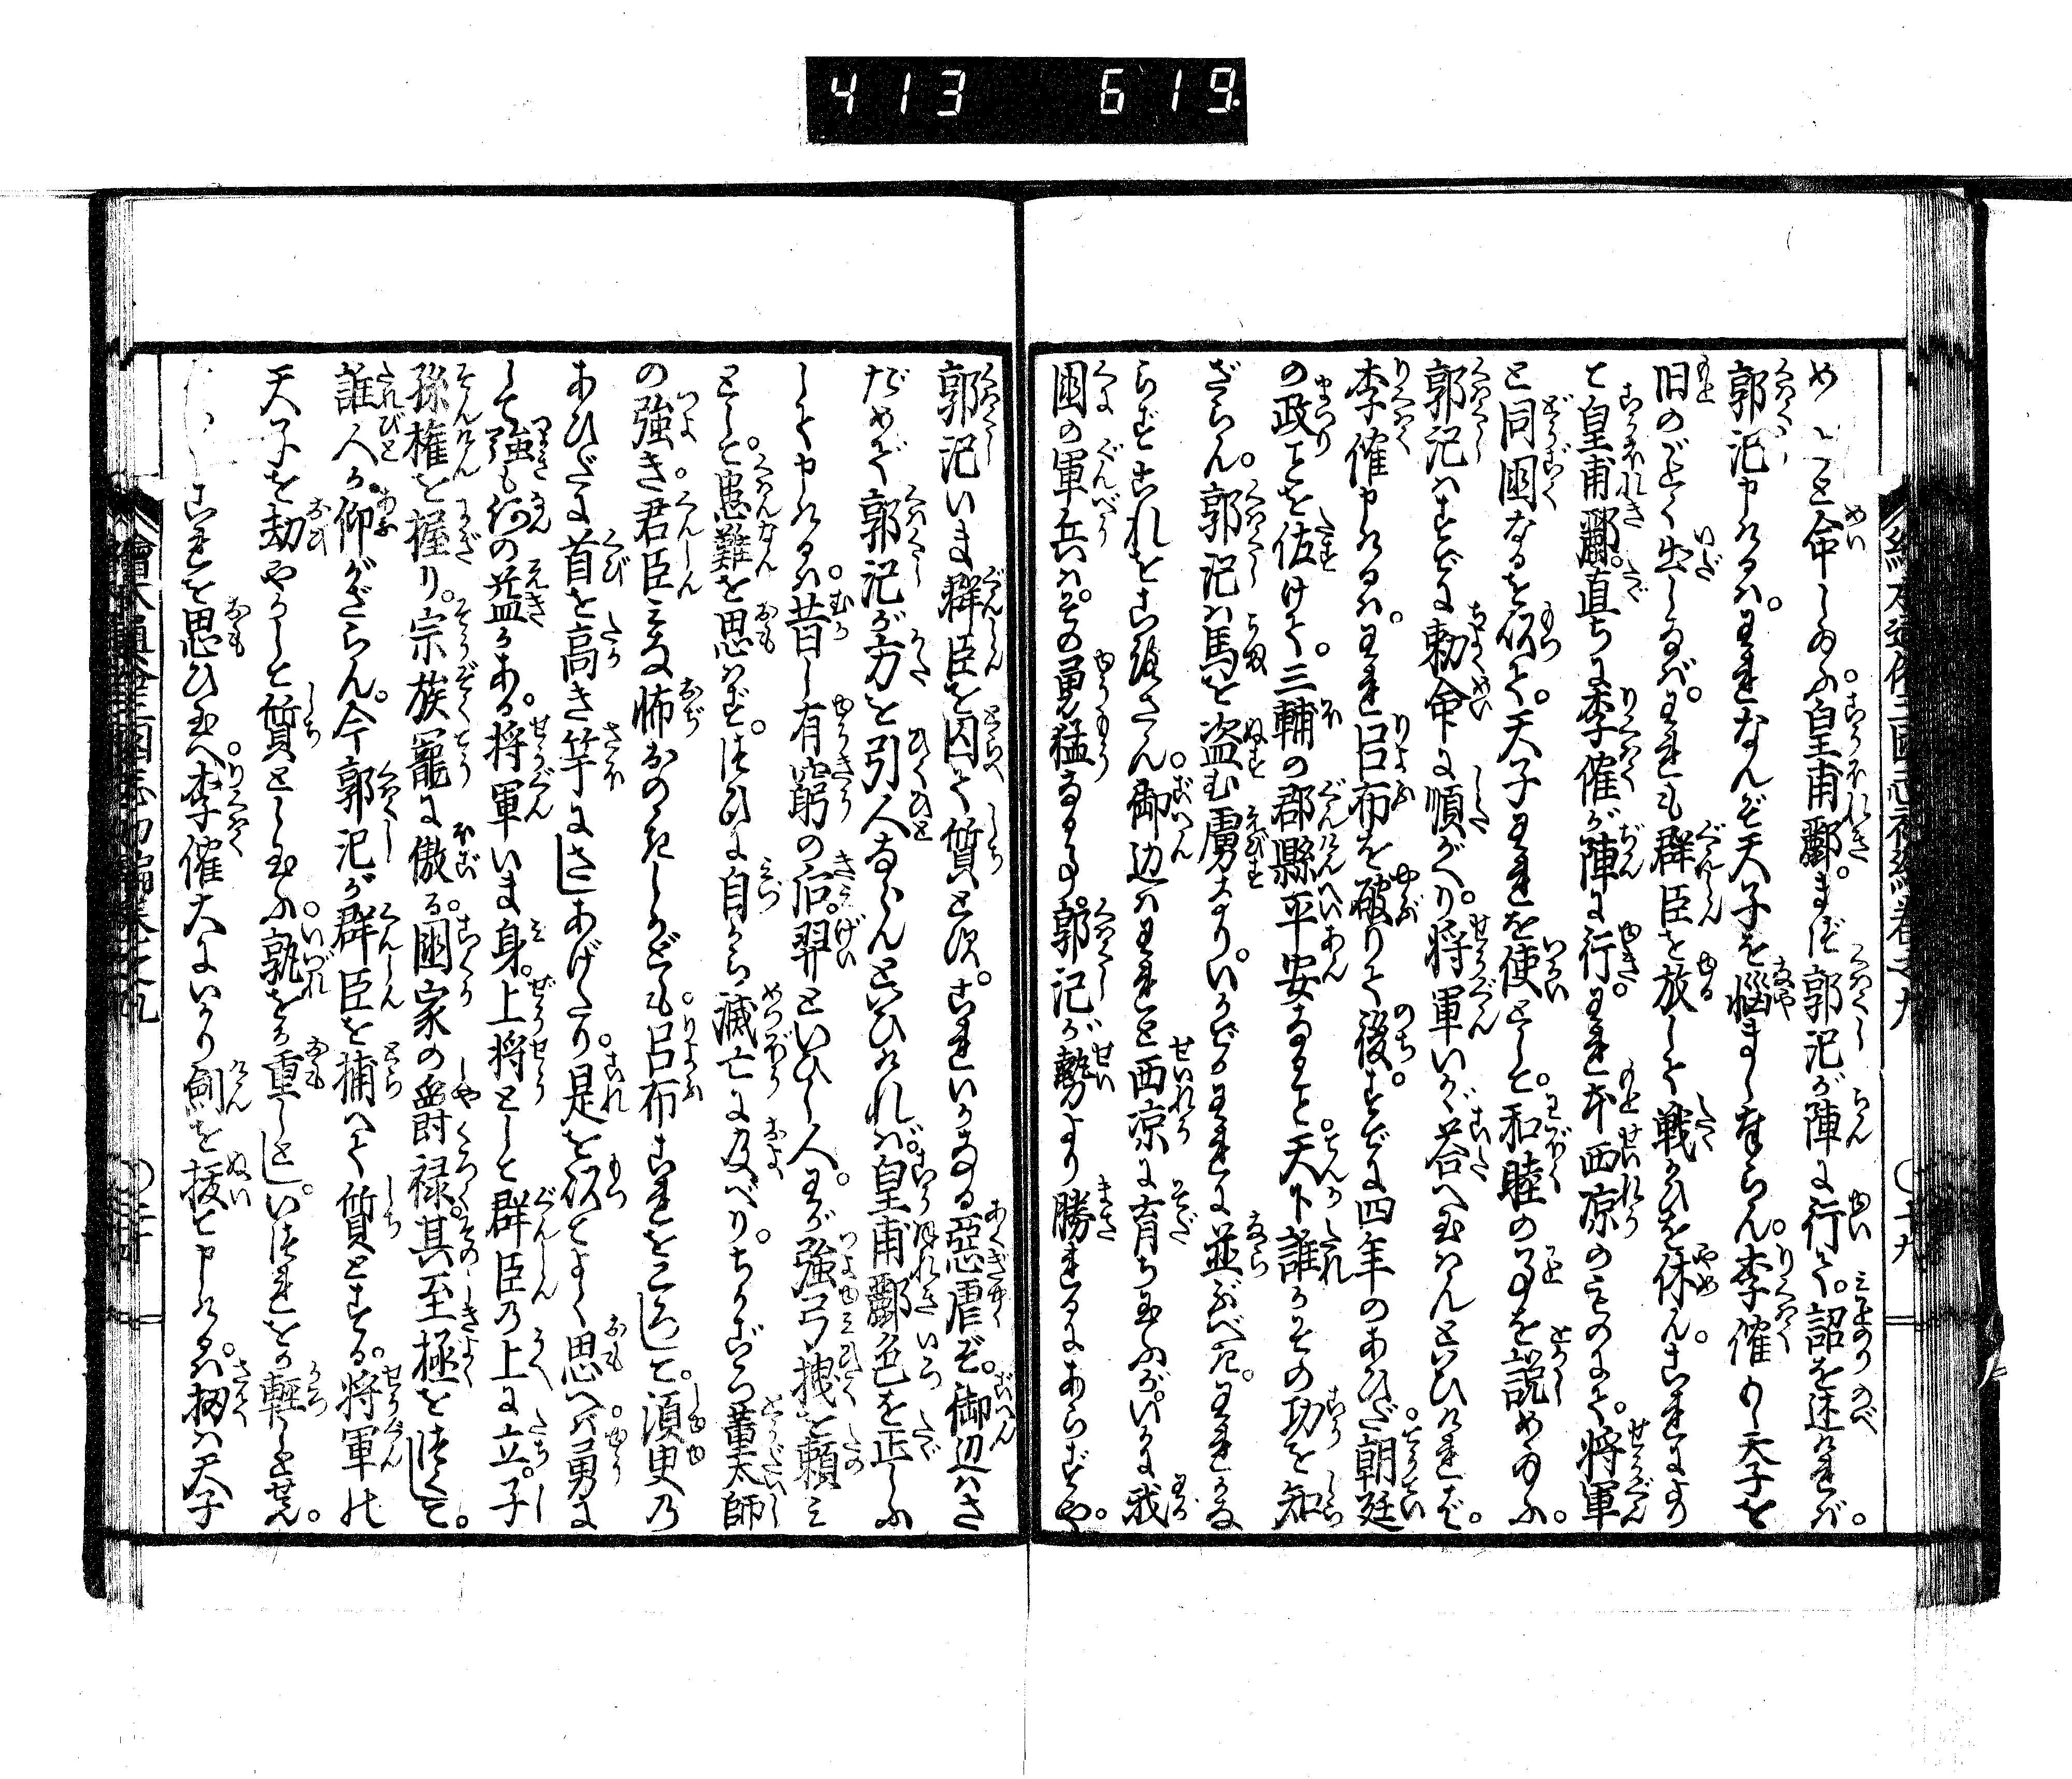 413 619.
め〱と命しゐふ。皇甫酈。まづ郭汜が陣に行て。詔を述ければ。
郭汜申けるハ。われなんぞ天子を悩ましまゐらん。李傕もし天子を
旧のごとく出しなば。われも群臣を放して戦ひを休ん。これによつ
て皇甫酈。直ちに李傕が陣に行き。われ本西凉のものにて。将軍
と同国なるを以て。天子われを使として。和睦の事を説め給ふ。
郭汜ハすでに勅命に順がへり。将軍いかゞ荅へ玉はんといひければ。
李傕申けるハ。われ呂布を破りて後。すでに四年のあひだ朝廷
の政ことを佐けて。三輔の郡縣平安なること。天下誰かその功を知
ざらん。郭汜ハ馬を盗む虜なり。いかでかわれに並ぶべき。われかな
らずこれをころさん。御辺ハわれと西凉に育ち玉ふが。いかに我
国の軍兵ハ。その勇猛なる事。郭汜が勢より勝れるにあらずや。
郭汜いま群臣を囚て質とす。これいかなる悪虐ぞ。御辺ハさ
だめて郭汜が方を引人ならんといひければ。皇甫酈色を正しふ
して申けるハ。昔し有窮の后羿といひし人。わが強弓拽を頼み
として。患難を思はず。つひに自から滅亡に及べり。ちかごろ董太師
の強き。君臣みな怖おのゝきしかども。呂布これをころして。須臾の
あひだに首を高き竿にさしあげたり。是を以てよく思へバ勇に
して強も何の益かある。将軍いま身。上将として群臣の上に立。子
孫権を握り。宗族寵に傲る。国家の爵禄。其至極をつくして。
誰人か仰がざらん。今郭汜が群臣を捕へて質とする。将軍の
天子を劫やかして質とし玉ふ。孰をか重しとし。いづれをか軽しとせん。
これを思ひ玉へ。李傕大にいかり劍を抜て申けるハ。扨ハ天子